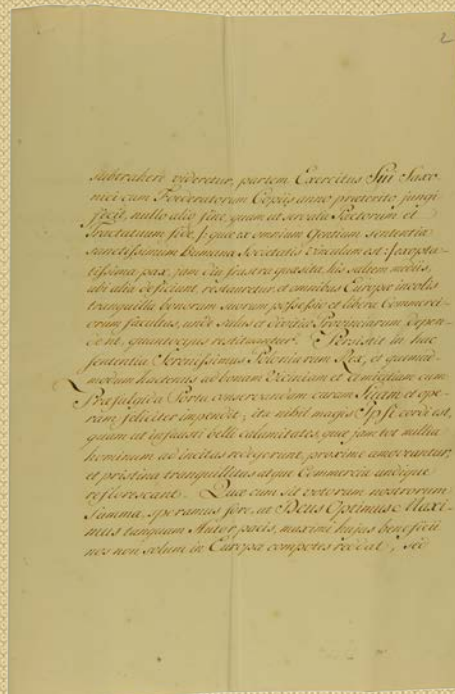 2
subtrahere videretur, partem Exercitus Sui Saxo-
nici cum Foederatorum Copiis anno praeterito jungi
fecit, nullo alio fine, quam ut servata Pactorum et
Tractatuum fide, /: quae ex omnium Gentium sententia
sanctissimum humanae Societatis vinculum est :/ exopta-
tissima pax, jam diu frustra quaesita, his saltem mediis,
ubi alia deficiunt, restauretur, et omnibus Europae incolis
tranquilla bonorum suorum possessio et libera Commerci-
orum facultas, unde salus et divitiae Provinciarum depen-
dent, quantocyus restituatur. Persistit in hac
sententia Serenissimus Poloniarum Rex, et quemad-
modum hactenus ad bonam Viciniam et Amicitiam cum
Praefulgida Porta conservandam curam Suam et ope-
ram feliciter impendit, ita nihil magis Ipsi cordi est,
quam ut infausti belli calamitates, quae jam tot millia
hominum ad incitas redegerunt, proxime amoveantur,
et pristina tranquillitas atque Commercia undique
reflorescant. Quae cum sit votorum nostrorum
Summa, speramus fore, ut Deus Optimus Maxi-
mus tanquam Autor pacis, maximi hujus beneficii
nos non solum in Europa compotes reddat, sed